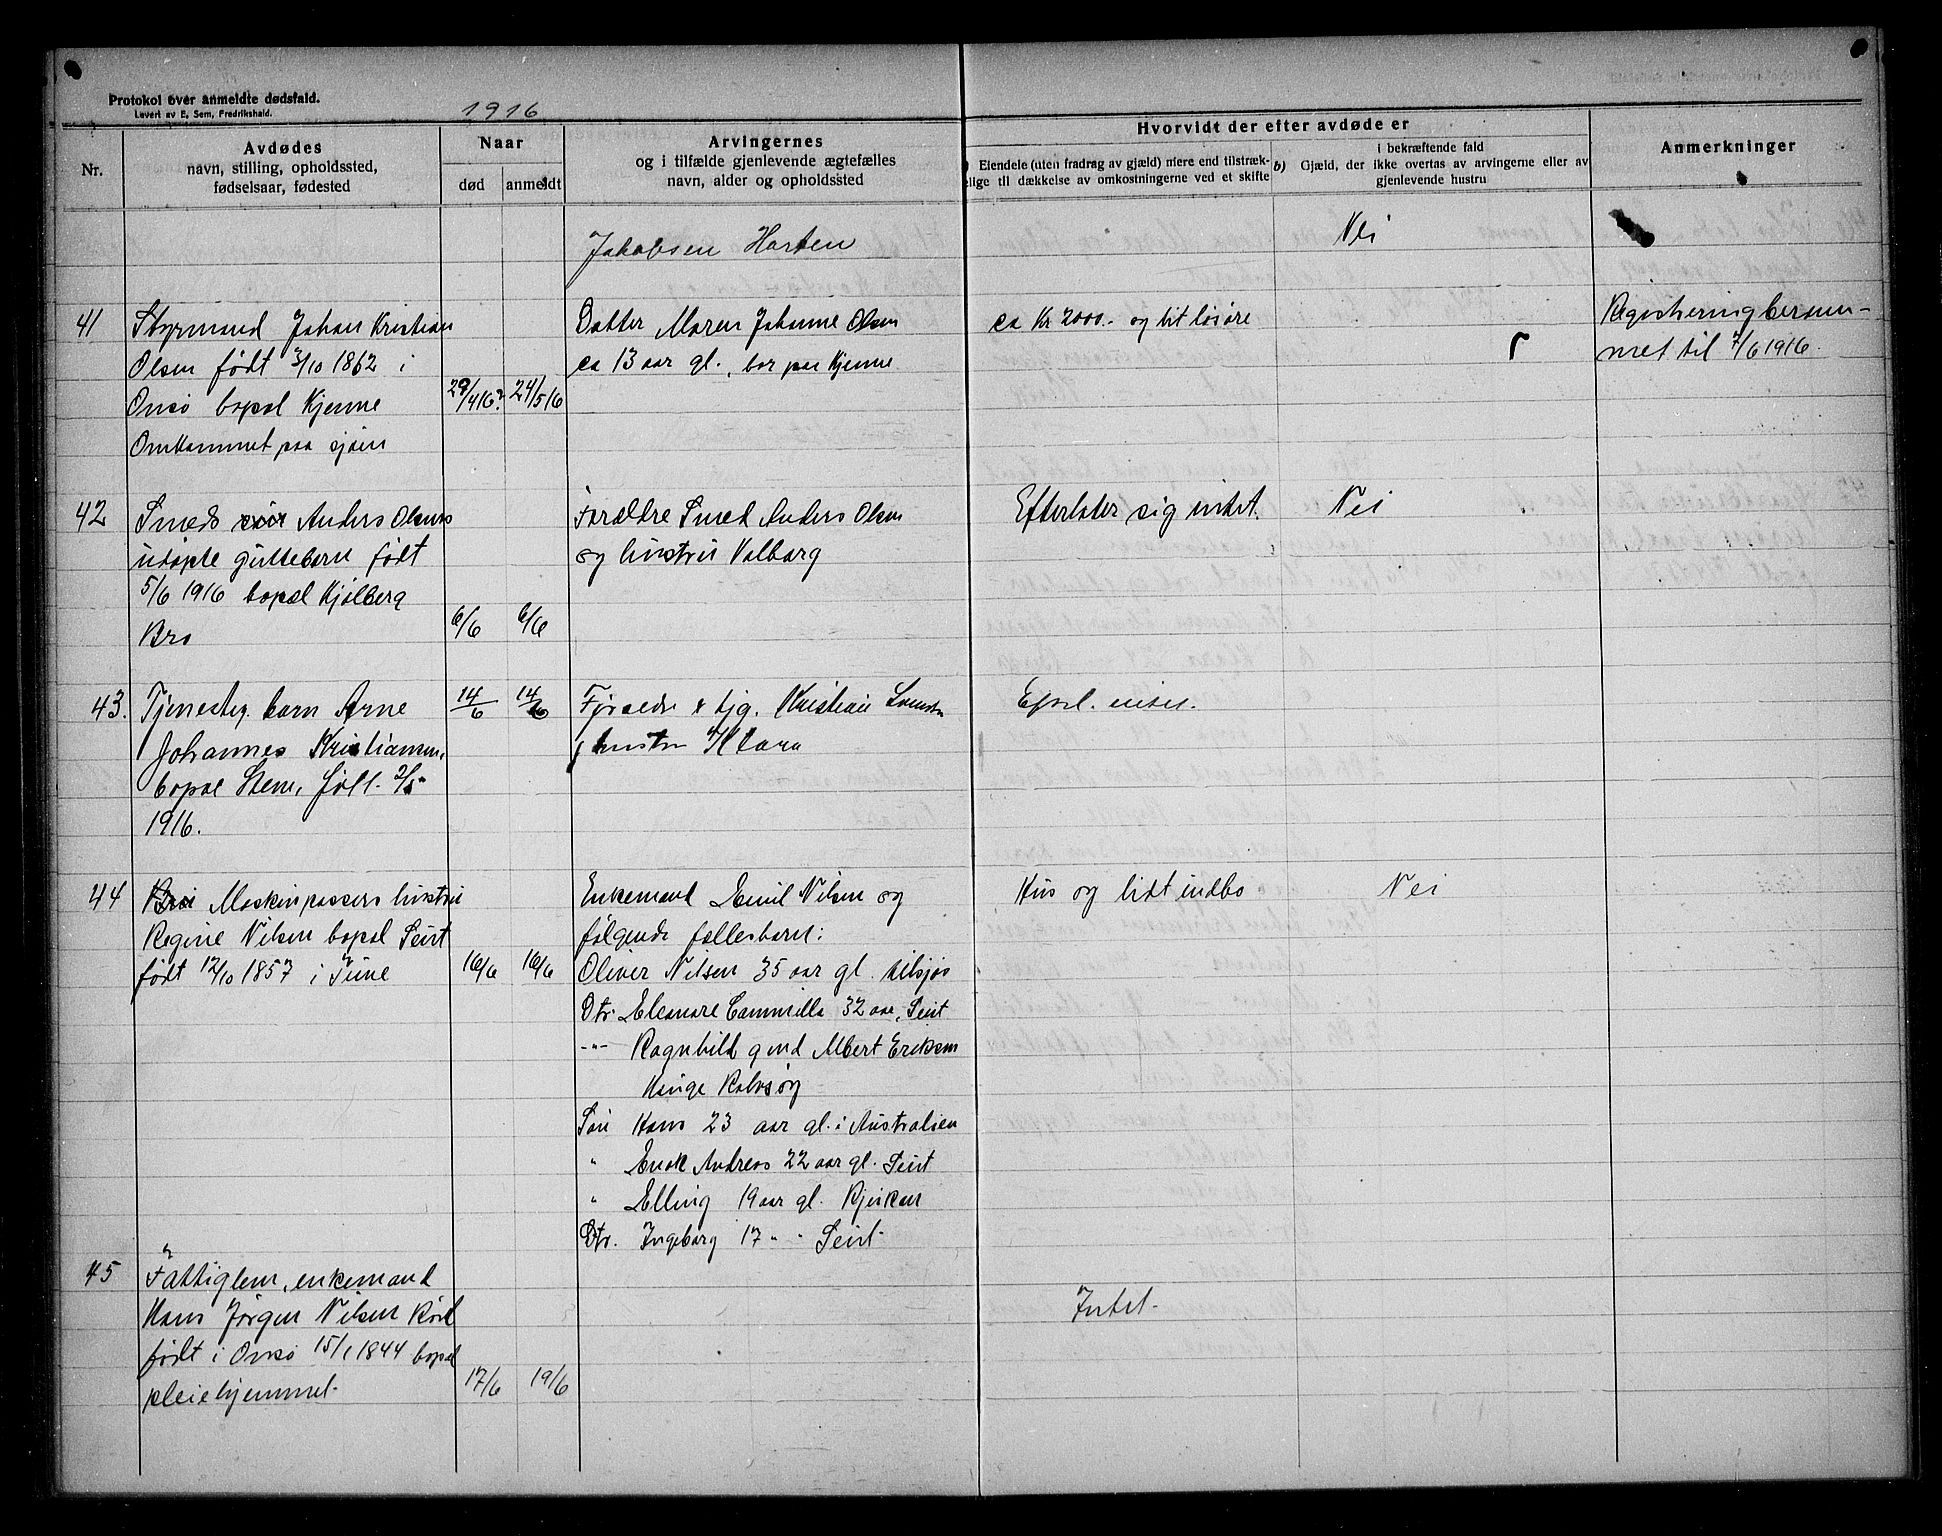 Protokol over anmeldte dødsfald.
Levert av E. Sem, Fredrikshald.
1916
Nr.
Avdødes
navn, stilling, opholdssted,
fødselsaar, fødested
Naar
død
anmeldt
Arvingernes
og i tilfælde gjenlevende ægtefælles
navn, alder og opholdssted
Hvorvidt der efter avdøde er
Eiendele (uten fradrag av gjæld) mere end tilstræk-
elige til dækkelse av omkostningerne ved et skifte
b) Gjæld, der
i bekræftende fald
ikke overtas av arvingerne eller av
gjenlevende hustru
Anmerkninger
Jakobsen Harten
Nei
41
Styrmand Johan Kristian
Olsen født 3/10 1862 i
Onsø bopal Kjenne
Omkommet paa sjøen
29/4 16?
24/5 16
Datter Maren Johanne Olsen
ca 13 aar gl., bor paa Kjenne
ca Kr 2000.- og lit løsøre
Registrering berammet
met til 7/6 1916.
42
Smed Anders Olsens
udøpte guttebarn født
5/6 1916 bopal Kjølberg
Bro
6/6
6/6
Forældre Smed Anders Olsen
og hustru Valborg
Efterlater sig intet.
Nei
43.
Tjenesteg. barn Arne
Johannes Kristiansen,
bopæl Sten, født 2/5
1916.
14/6
14/6
Forældre tjg. Kristian
hustru Klara
44
Maskinpassers hustru
Regine Nilsen bopal Seut
født 12/10 1857 i Tune
16/6
16/6
Enkemand Emil Nilsen og
følgende fællesbarn:
Oliver Nilsen 35 aar gl. tilsjøs
Dtr. Eleonore Cammilla 32 aar, Seut
-"- Ragnhild g. md Albert Eriksen
Hauge Rolvsøy
Søn Hans 23 aar gl. i Australien
" Enok Andreas 22 aar gl. Seut
" Elling 19 aar gl.
Dtr. Ingeborg 17 " " Seut
Hus og lidt indbo
Nei
45
Fattiglem, enkemand
Hans Jørgen Nilsen Rød
født i Onsø 15/1 1844 bopal
pleiehjemmet.
17/6
19/6
Intet.